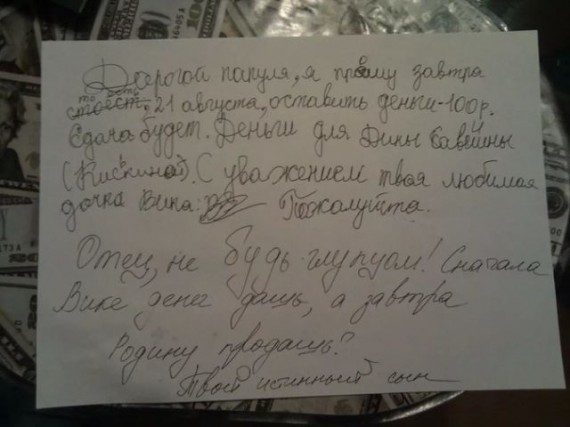 Дорогой папуля, я прошу завтра
то есть 21 августа, оставить деньги-100 р.
Сдача будет. Деньги для Дины Савельны
(Кискиной). С уважением твоя любимая
дочка Вика. Пожалуйста.
Отец, не будь глупцом! Сначала
Вике денег дашь, а завтра
Родину продашь?
Твой истинный сын